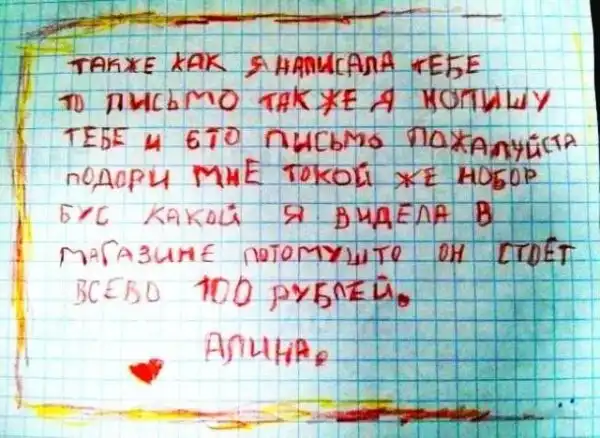 ТАКЖЕ КАК Я НАПИСАЛА ТЕБЕ
ТО ПИСЬМО ТАК ЖЕ Я НОПИШУ
ТЕБЕ И ЕТО ПИСЬМО ПОЖАЛУЙСТА
ПОДОРИ МНЕ ТОКОЙ ЖЕ НОБОР
БУС КАКОЙ Я ВИДЕЛА В
МАГАЗИНЕ ПОТОМУШТО ОН СТОЕТ
ВСЕВО 100 РУБЛЕЙ.
АЛИНА.